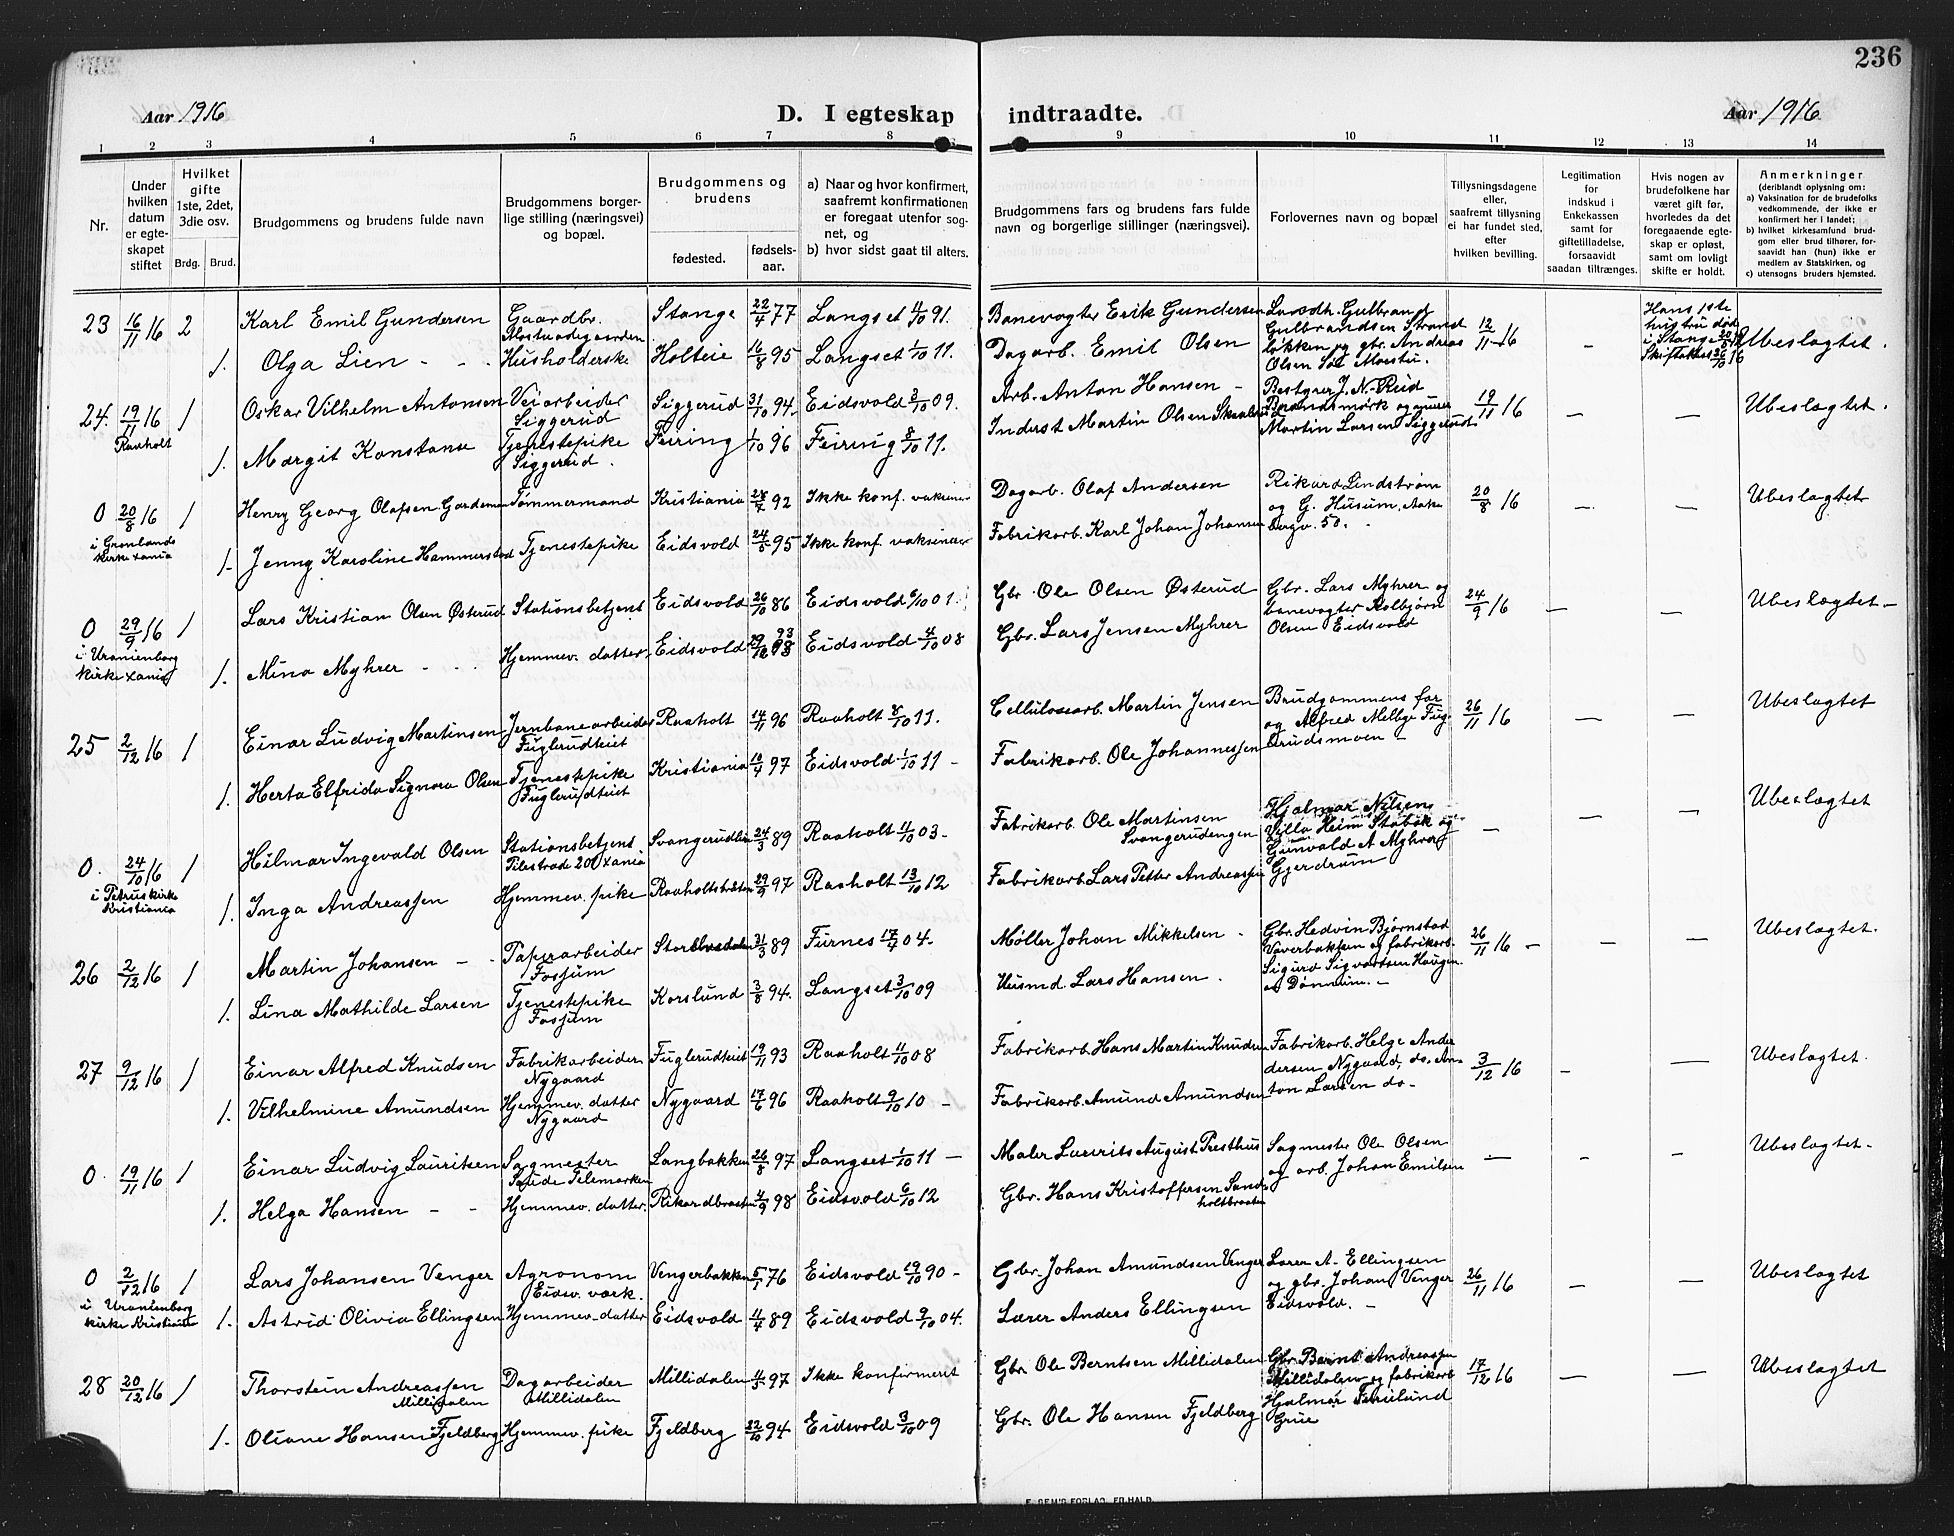 236
Aar 1916
D. I egteskap indtraadte.
Aar 1916
1 2 3 4 5 6 7 8 9 10 11 12 13 14
Nr.
Under hvilken datum er egteskapet stiftet
Hvilket gifte 1ste, 2det, 3die osv.
Brdg. Brud.
Brudgommens og brudens fulde navn
Brudgommens borgerlige stilling (næringsvei) og bopæl.
Brudgommens og brudens
fødested.
fødselsaar.
a) Naar og hvor konfirmert, saafremt konfirmationen er foregaat utenfor sognet, og
b) hvor sidst gaat til alters.
Brudgommens fars og brudens fars fulde navn og borgerlige stillinger (næringsvei).
Forlovernes navn og bopæl
Tillysningsdagene eller, saafremt tillysning ei har fundet sted, efter hvilken bevilling.
Legitimation for indskud i Enkekassen samt for giftetilladelse, forsaavidt saadan tiltrænges.
Hvis nogen av brudefolkene har været gift før, hvorledes da det foregaaende egteskap er opløst, samt om lovligt skifte er holdt.
Anmerkninger (deriblandt oplysning om: a) Vaksination for de brudefolks vedkommende, der ikke er konfirmert her i landet; b) hvilket kirkesamfund brudgom eller brud tilhører, forsaavidt han (hun) ikke er medlem av Statskirken, og c) utensogns bruders hjemsted.
23 16/11 16 2 Karl Emil Gundersen Gaardbr. Stange 22/4 77 Langset 11/10 91. Banevogter Erik Gundersen 12/11-16 - Hans 1ste hustru død i Stange Ubeslægtet.
1. Olga Lien - - Husholderske Holteie 16/8 95 Langset 1/10 11. Dagarb. Emil Olsen
24. 19/11 16 Raaholt 1 Oskar Vilhelm Antonsen Veiarbeider Siggerud Siggerud 31/10 94. Eidsvold 3/10 09. Arb. Anton Hansen - Bestyrer J. N. Reid Martin Larsen Siggerud. 19/11 16 - - Ubeslægtet.
1. Margit Konstanse Tjenestepike Siggerud. Feiring 1/10 96 Feiring 8/10 11. Inderst Martin Olsen
0 20/8 16 i Grønlands kirke Xania 1 Henry Georg Olafsen Gardemen Tømmermand Kristiania 28/7 92 Ikke konf. vaksinert Dagarb. Olaf Andersen Rikard Lindstrøm og G. Husum, Aakebergv. 50. 20/8 16 - - Ubeslægtet
1. Jenny Karoline Hammerstad Tjenestepike Eidsvold 24/5 95 Ikke konf. vaksinert Fabrikarb. Karl Johan Johansen
0 29/9 16 i Uranienborg kirke Xania 1 Lars Kristian Olsen Østerud Stationsbetjent Eidsvold 26/10 86 Eidsvold 6/10 01. Gbr. Ole Olsen Østerud Gbr. Lars Myhrer og banevogter Kolbjørn Olsen Eidsvold 24/9 16 - - Ubeslægtet -
1. Mina Myhrer - - Hjemmev. datter. Eidsvold 29/12 93 Eidsvold 4/10 08 Gbr. Lars Jensen Myhrer
25 2/12 16 1 Einar Ludvig Martinsen Jernbanearbeider Fuglerudteiet Raaholt 14/11 96 Raaholt 8/10 11. Cellulosearb. Martin Jensen Brudgommens far og Alfred Melbye Fuglerudsmoen - 26/11 16 - - Ubeslægtet
1. Herta Elfrida Signora Olsen Tjenestepike Fuglerudteiet Kristiania 10/4 97 Eidsvold 1/10 11 - Fabrikarb. Ole Johannessen
0. 24/10 16 i Petruskirke Kristiania 1 Hilmar Ingevald Olsen Stationsbetjent Pilestrade 20 Xania 24/3 89 Raaholt 11/10 03. Fabrikarb. Ole Martinsen Svangerudengen Hjalmar Nilsen Villa Heim Stabæk og Gunvald A Myhrer Gjerdrum - - - Ubeslægtet
1. Inga Andreassen Hjemmev. pike 29/9 97 Raaholt 13/10 12 Fabrikarb. Lars Petter Andreassen
26 2/12 16 1 Martin Johansen - - Papirarbeider Fossum Storelvedalen 31/3 89 Furnes 17/4 04. Møller Johan Mikkelsen - Gbr. Hedvin Bjørnstad og fabrikarb. Sigurd Sigvartsen Haugen. 26/11 16 - - - Ubeslægtet.
1. Lina Mathilde Larsen Tjenestepike Fossum Korslund 3/8 94. Langset 3/10 09 Husmd. Lars Hansen.
27 9/12 16 1 Einar Alfred Knudsen Fabrikarbeider Nygaard Fuglerudteiet 19/11 93 Raaholt 11/10 08 Fabrikarb. Hans Martin Knudsen Fabrikarb. Helge Andersen Nygaard, do. Anton Larsen do - 3/12 16 - - Ubeslægtet.
1. Vilhelmine Amundsen Hjemmev. datter Nygaard Nygaard 17/6 96 Raaholt 9/10 10 - Fabrikarb. Amund Amundsen
0. 19/11 16 1 Einar Ludvig Lauritsen Sagmester Langbakken 26/8 97 Langset 1/10 11 - Maler Laurits August Presthus Sagmester Ole Olsen og arb. Johan Emilsen - - - Ubeslægtet.
1. Helga Hansen - - Hjemmev. datter. Rikardbraaten 4/9 98 Eidsvold 6/10 12 Gbr. Hans Kristoffersen Sandholtbraaten
0 2/12 16 i Uranienborg kirke Kristiania 1 Lars Johansen Venger Agronom Eidsv. værk. Vengerbakken 5/1 76 Eidsvold 19/10 90 - Gbr. Johan Amundsen Venger Lærer A. Ellingsen og gbr. Johan Venger Eidsvold. - 26/11 16 - - Ubeslægtet
1. Astrid Olivia Ellingsen Hjemmev. datter Eidsvold 11/4 89 Eidsvold 9/10 04. Lærer Anders Ellingsen
28 20/12 16 1 Thorstein Andreassen Millidalen Dagarbeider Millidalen Millidalen 4/5 97 Ikke konfirmert Gbr. Ole Berntsen Millidalen Gbr. Bernt Andreassen Millidalen og fabrikarb Hjalmar Grue 17/12 16 - - Ubeslægtet
1. Oliane Hansen Fjeldberg Hjemmev. pike Fjeldberg 22/10 94 Eidsvold 3/10 09 Gbr. Ole Hansen Fjeldberg